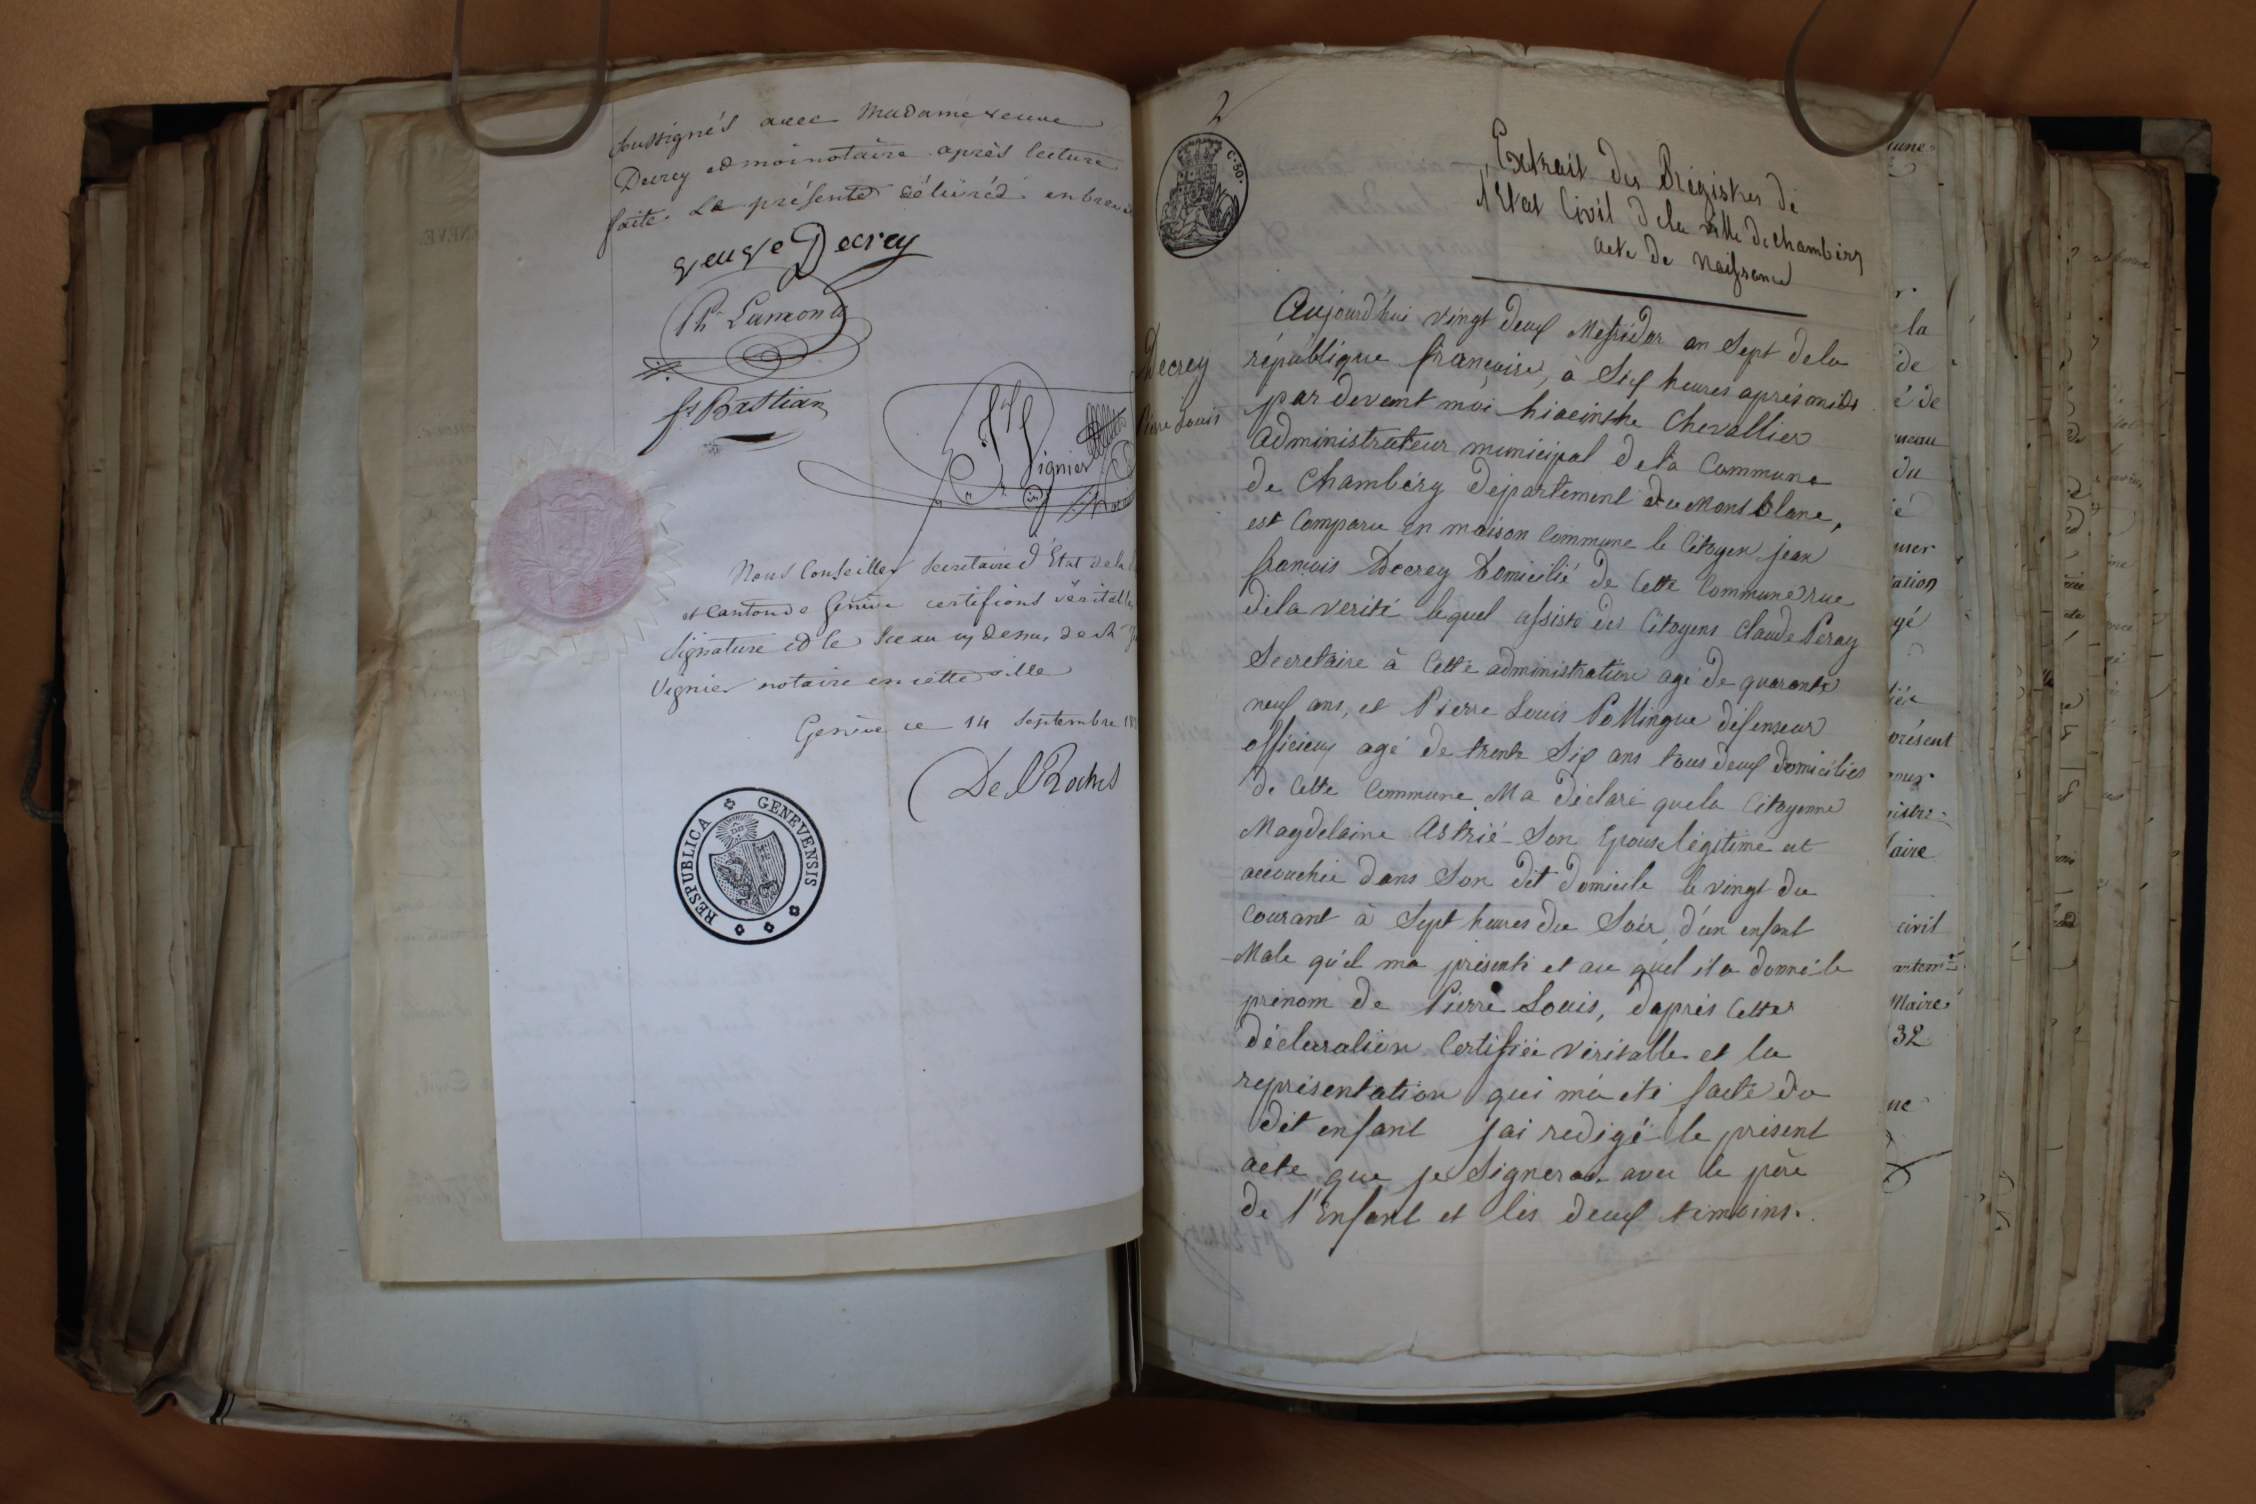 soussignés avec Madame veuve
Decrey et moi notaire après lecture
faite. La présente délivrée en
veuve Decrey
Ph Lamond
fs Bastian
Vignier
Nous Conseiller Secretaire d'Etat de la
et Canton de Genève certifions véritables
signature et le sceau cy dessus de
Vignier notaire en cette ville
Genève ce 14 Septembre
De Roches
RESPUBLICA GENEVENSIS
2
C. 50.
Extrait des Régistres de
l'Etat Civil de la ville de chambéry
acte de Naissance
Decrey
Pierre Louis
Aujourd'hui vingt deux Messidor an Sept de la
république française, à Six heures après midi
par devant moi hiacinthe Chevallier
administrateur municipal de la Commune
de Chambéry département du Mont blanc,
est Comparu en maison Commune le Citoyen jean
françois Decrey domicilié de Cette Commune rue
de la verité lequel assisté des Citoyens Claude Peray
Secretaire à Cette administration agé de quarante
neuf ans, et Pierre Louis Pollingue défenseur
officieux agé de trente Six ans tous deux domiciliés
de Cette Commune Ma déclaré que la Citoyenne
Magdelaine Astrié Son Epouse légitime est
accouchée dans Son dit domicile le vingt du
Courant à Sept heures du Soir, d'un enfant
Male qu'il ma présenté et au quel il a donné le
prénom de Pierre Louis, d'après Cette
déclaration Certifiée véritable et la
représentation qui m'a été faite du
dit enfant j'ai redigé le présent
acte que je Signerai avec le père
de l'Enfant et les deux témoins.
la
de
é de
du
civil
Maire
32